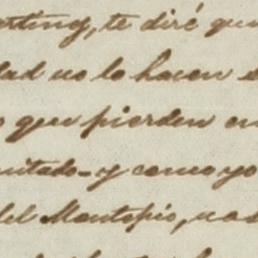 etting, te diré que
dad no lo hacen
que pierden en
uitado-y como yo
del Montepío, nos